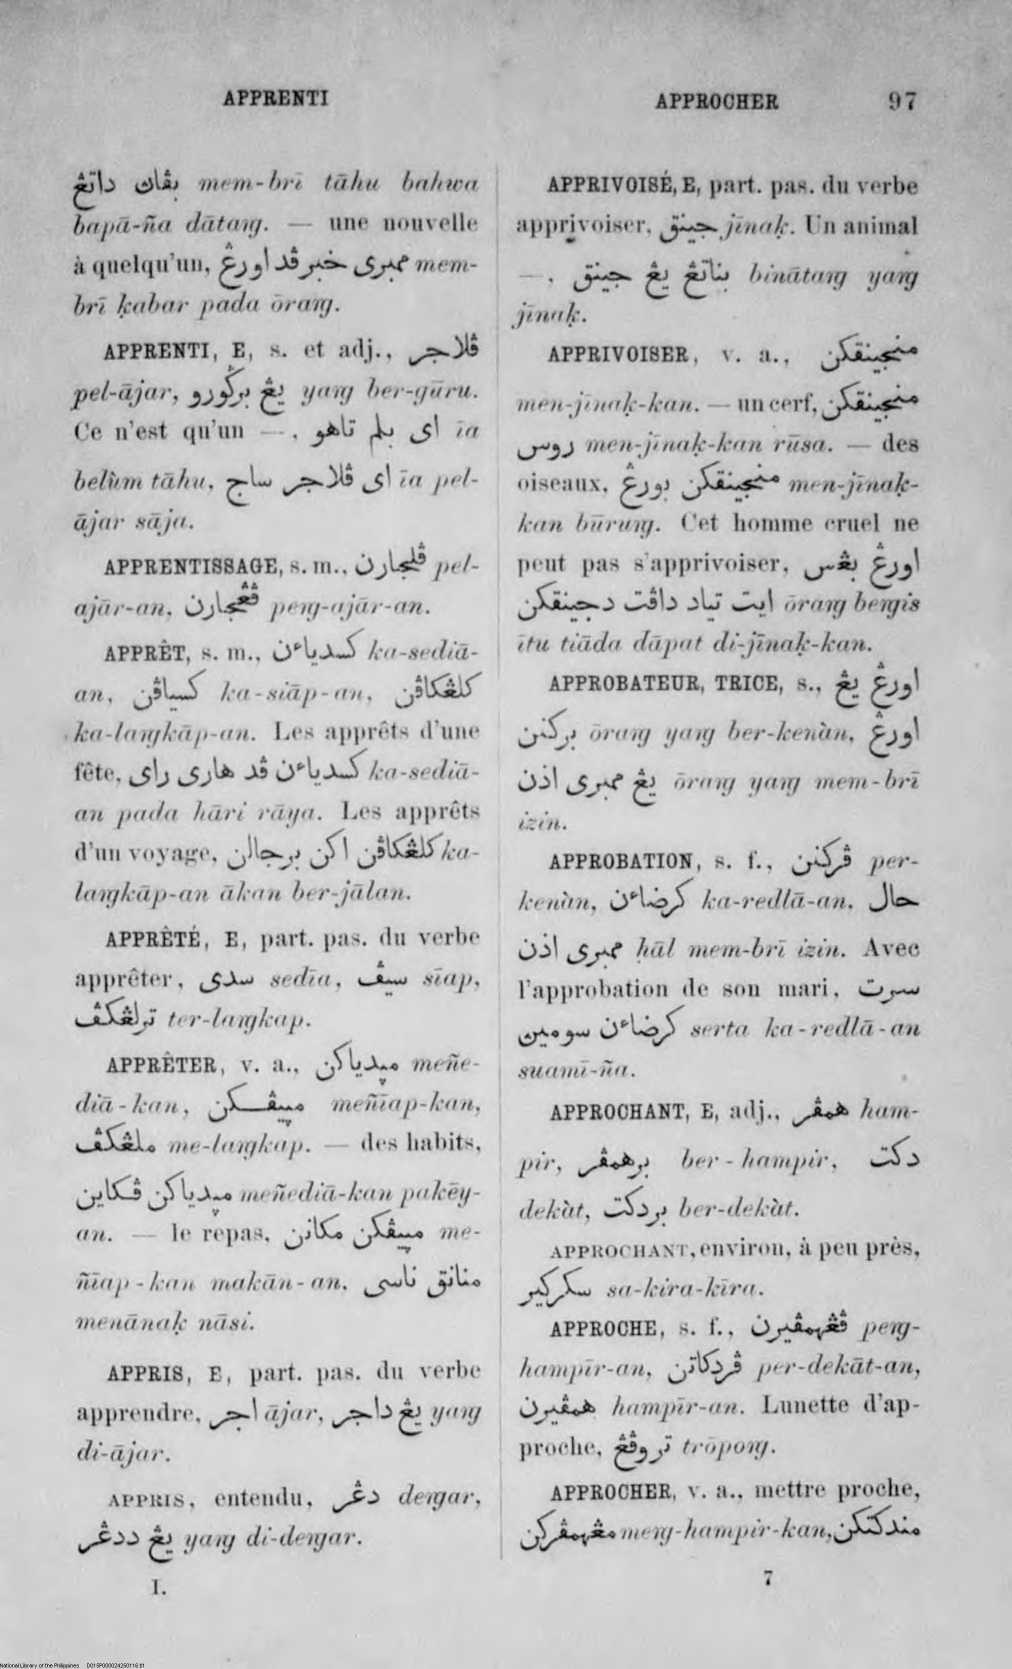 APPRENTI
APPROCHER 97
بڤاڽ داتڠ mem-brī tāhu bahwa
bapā-ña dātaŋ. — une nouvelle
à quelqu'un, ممبری خبر ڤد اورڠ mem-
brī ḳabar pada ōraŋ.
APPRENTI, E, s. et adj., ڤلاجر
pel-ājar, يڠ برݢورو yaŋ ber-gūru.
Ce n'est qu'un —, ای بلم تاهو īa
belùm tāhu, ای ڤلاجر ساج īa pel-
ājar sāja.
APPRENTISSAGE, s. m., ڤلجارن pel-
ajār-an, ڤڠجارن peŋ-ajār-an.
APPRÊT, s. m., كسدياءن ka-sediā-
an, كسياڤن ka-siāp-an, كلڠكاڤن
ka-laŋkāp-an. Les apprêts d'une
fête, كسدياءن ڤد هاری رای ka-sediā-
an pada hāri rāya. Les apprêts
d'un voyage, كلڠكاڤن اكن برجالن ka-
laŋkāp-an ākan ber-jālan.
APPRÊTÉ, E, part. pas. du verbe
apprêter, سدی sedīa, سيڤ sīap,
ترلڠكڤ ter-laŋkap.
APPRÊTER, v. a., ميدياكن meñe-
diā-kan, مييڤكن meñīap-kan,
ملڠكڤ me-laŋkap. — des habits,
ميدياكن ڤكاين meñediā-kan pakēy-
an. — le repas, مييڤكن مكانن me-
ñīap-kan makān-an, منانق ناسی
menānaḳ nāsi.
APPRIS, E, part. pas. du verbe
apprendre, اجر ājar, يڠ داجر yaŋ
di-ājar.
APPRIS, entendu, دڠر deŋar,
يڠ ددڠر yaŋ di-deŋar.
I.
APPRIVOISÉ, E, part. pas. du verbe
apprivoiser, جينق jīnaḳ. Un animal
—, بناتڠ يڠ جينق binātaŋ yaŋ
jīnaḳ.
APPRIVOISER, v. a., منجينقكن
men-jīnaḳ-kan. — un cerf, منجينقكن
روس men-jīnaḳ-kan rūsa. — des
oiseaux, منجينقكن بورڠ men-jīnaḳ-
kan būruŋ. Cet homme cruel ne
peut pas s'apprivoiser, اورڠ بڠس
ايت تياد داڤت دجينقكن ōraŋ beŋis
ītu tiāda dāpat di-jīnaḳ-kan.
APPROBATEUR, TRICE, s., اورڠ يڠ
بركنن ōraŋ yaŋ ber-kenàn, اورڠ
يڠ ممبری اذن ōraŋ yaŋ mem-brī
izin.
APPROBATION, s. f., ڤركنن per-
kenàn, كرضاءن ka-redlā-an, حال
ممبری اذن ḥāl mem-brī izin. Avec
l'approbation de son mari, سرت
كرضاءن سومين serta ka-redlā-an
suamī-ña.
APPROCHANT, E, adj., همڤر ham-
pir, برهمڤر ber-hampir, دكت
dekàt, بردكت ber-dekàt.
APPROCHANT, environ, à peu près,
سكركير sa-kira-kīra.
APPROCHE, s. f., ڤڠهمڤيرن peŋ-
hampīr-an, ڤردكاتن per-dekāt-an,
همڤيرن hampīr-an. Lunette d'ap-
proche, تروڤڠ trōpoŋ.
APPROCHER, v. a., mettre proche,
مڠهمڤركن meŋ-hampir-kan, مندكتكن
7
National Library of the Philippines